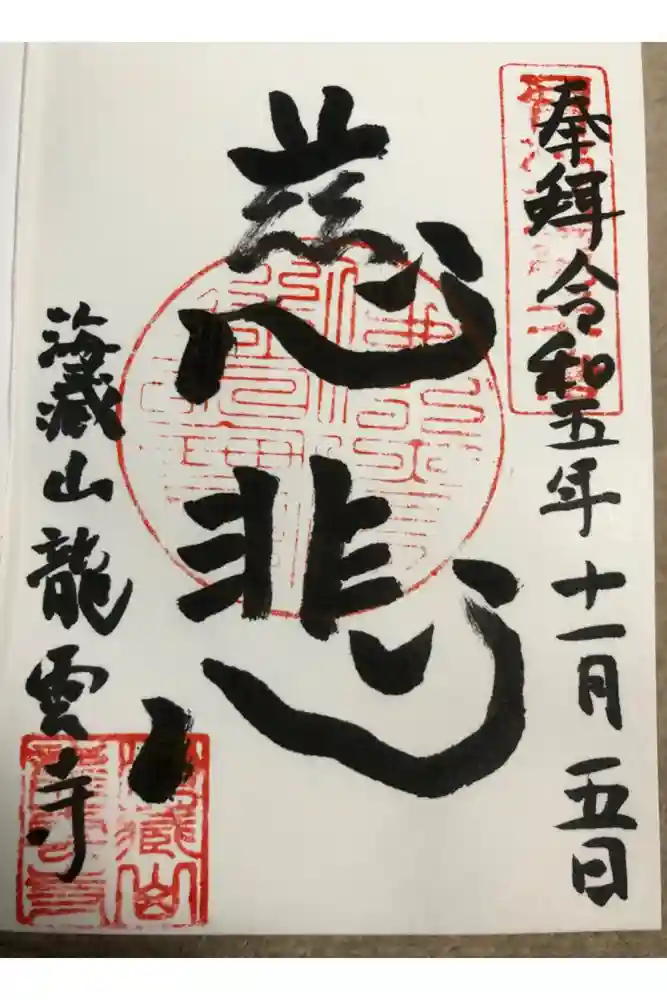 奉拝 令和五年 十一月 五日
慈悲
海蔵山 龍雲寺